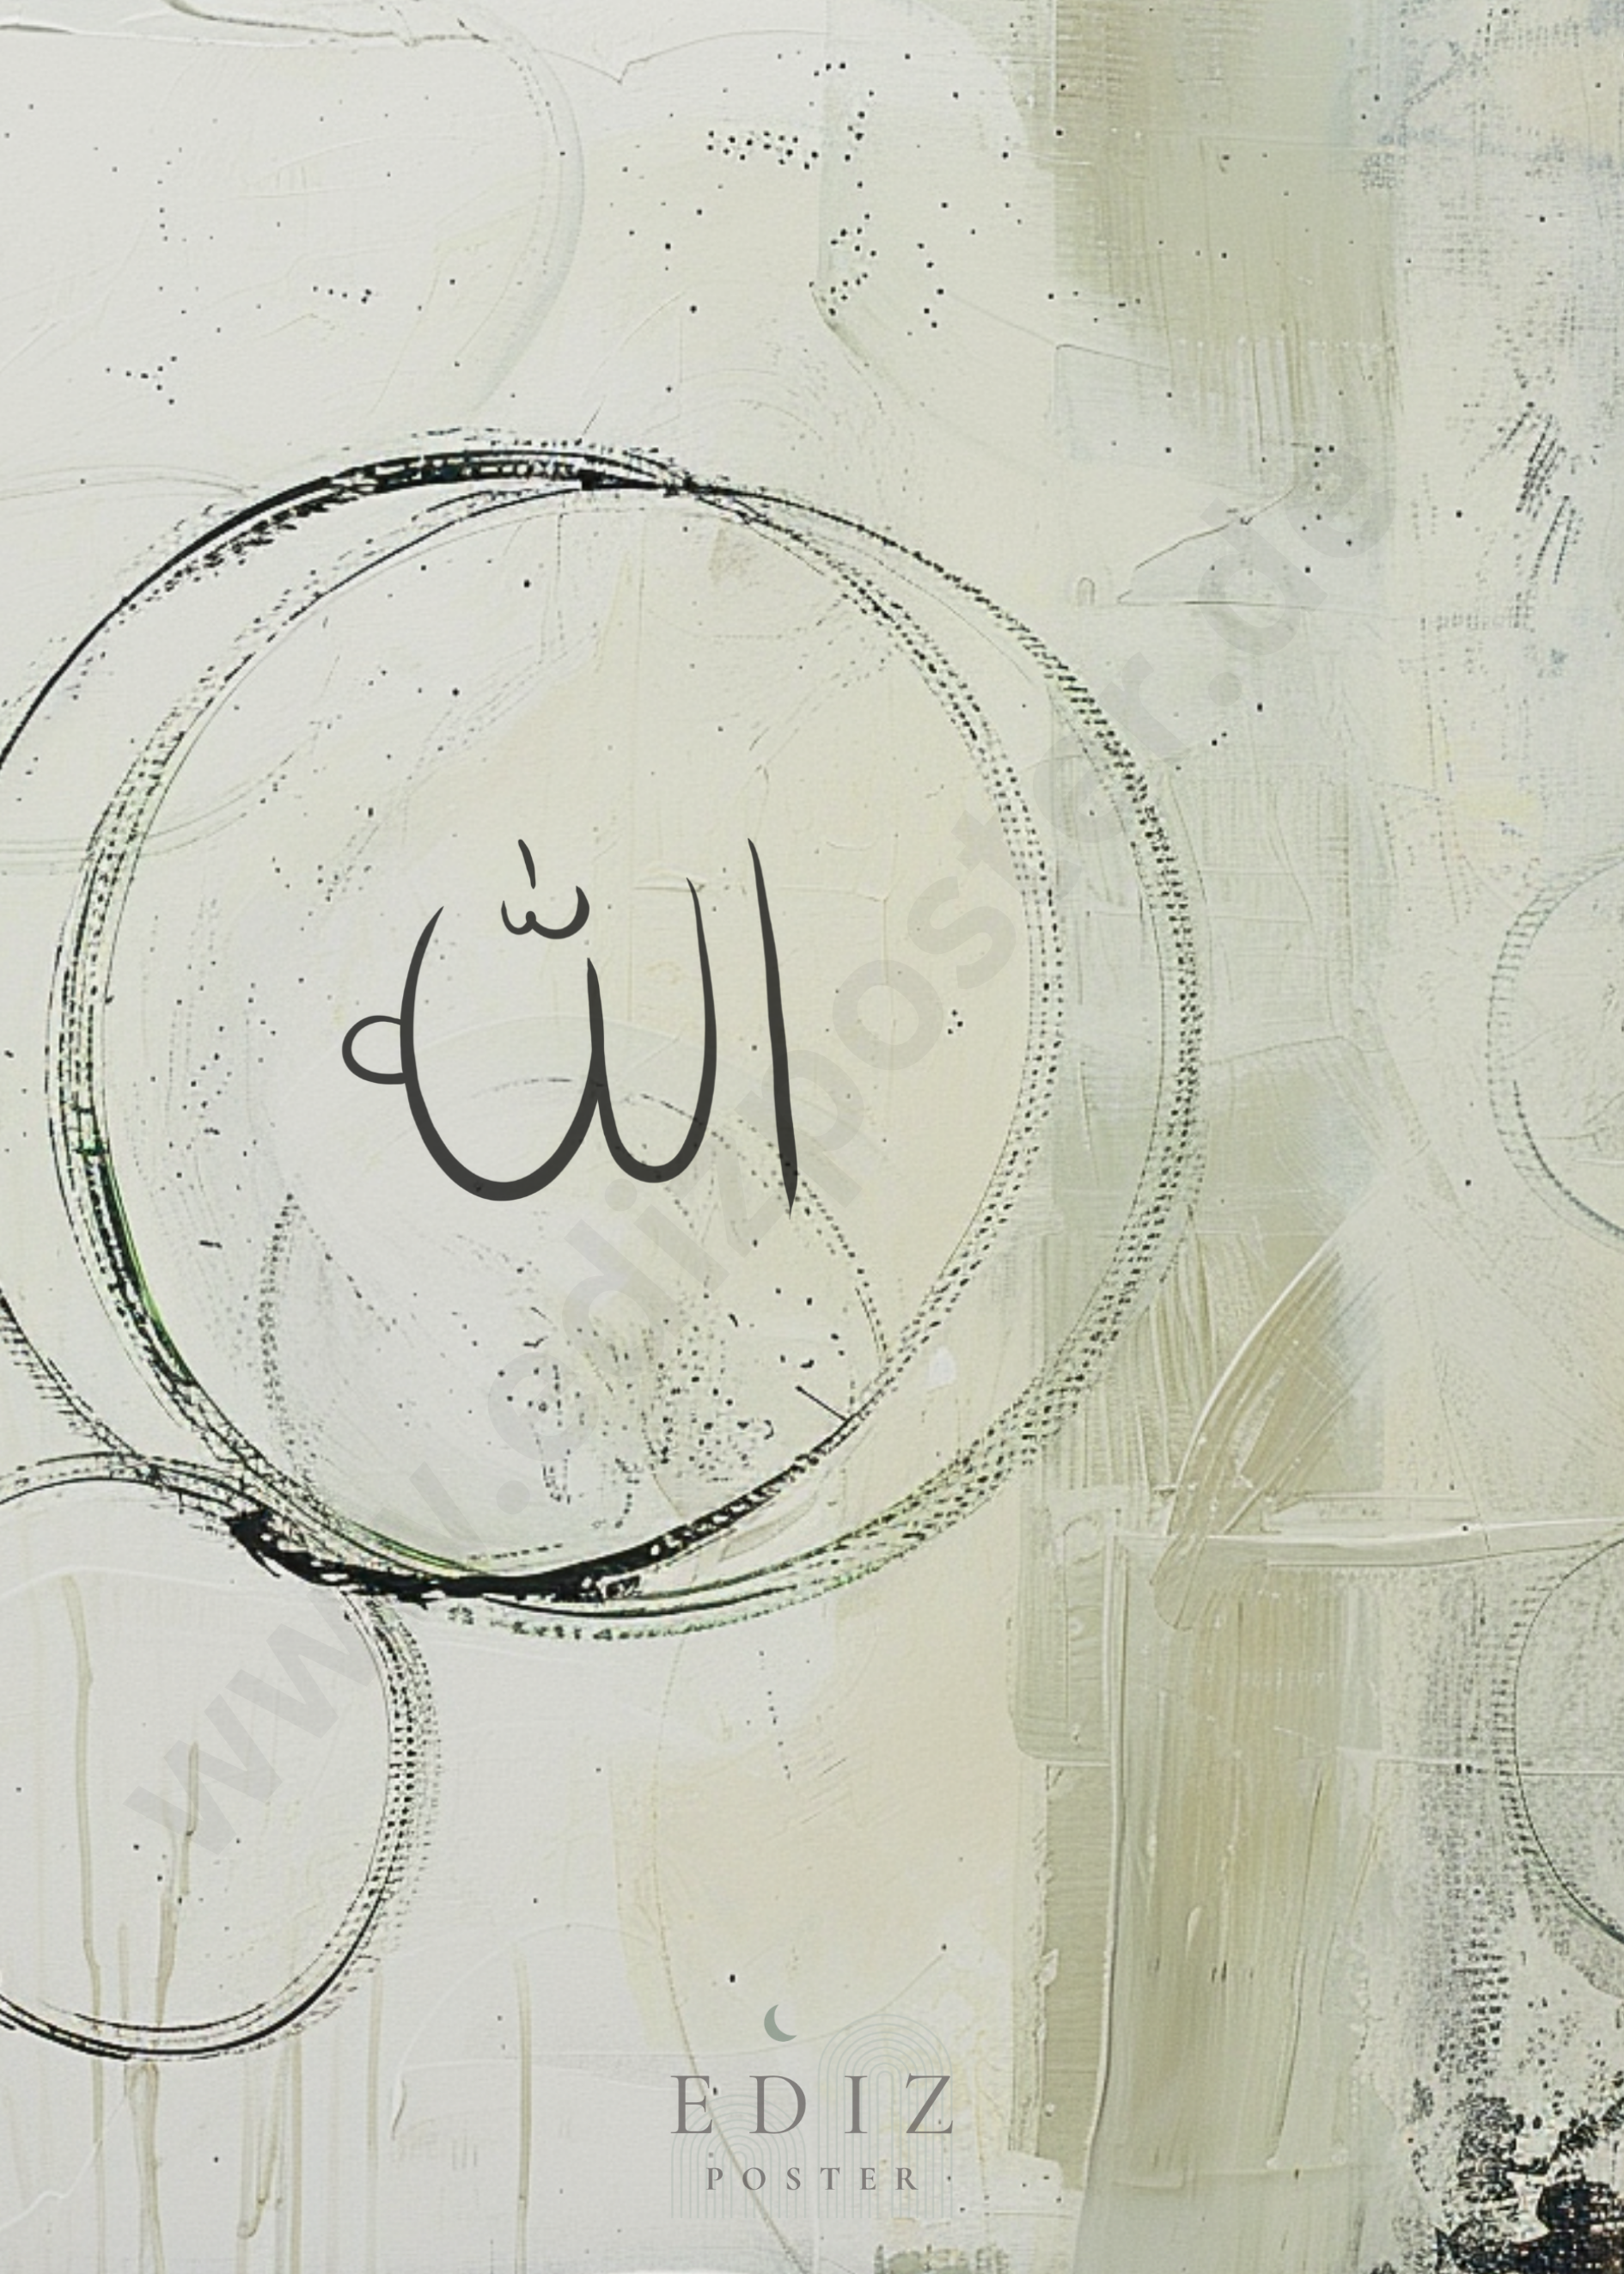 الله
www.edizposter.de
EDIZ
POSTER